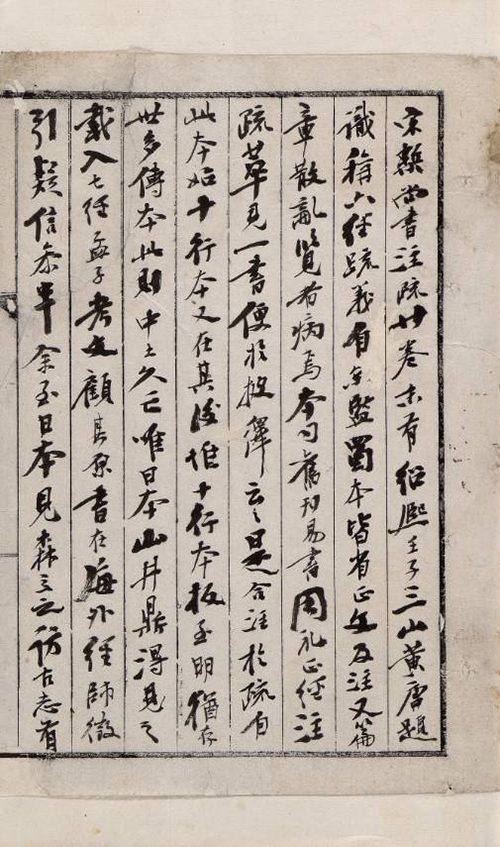 宋槧尚書注疏廿卷末有紹熙壬子三山黃唐題
識稱六經疏義自京監蜀本皆省正文及注又篇
章散亂覽者病焉本司舊刊易書周礼正經注
疏萃見一書便於披繹云〻是合注於疏自
此本始十行本又在其後惟十行本板至明猶存
世多傳本此則中土久亡唯日本山井鼎得見之
載入七經孟子考文顧其原書在海外經師徵
引疑信參半余至日本見森立之訪古志有